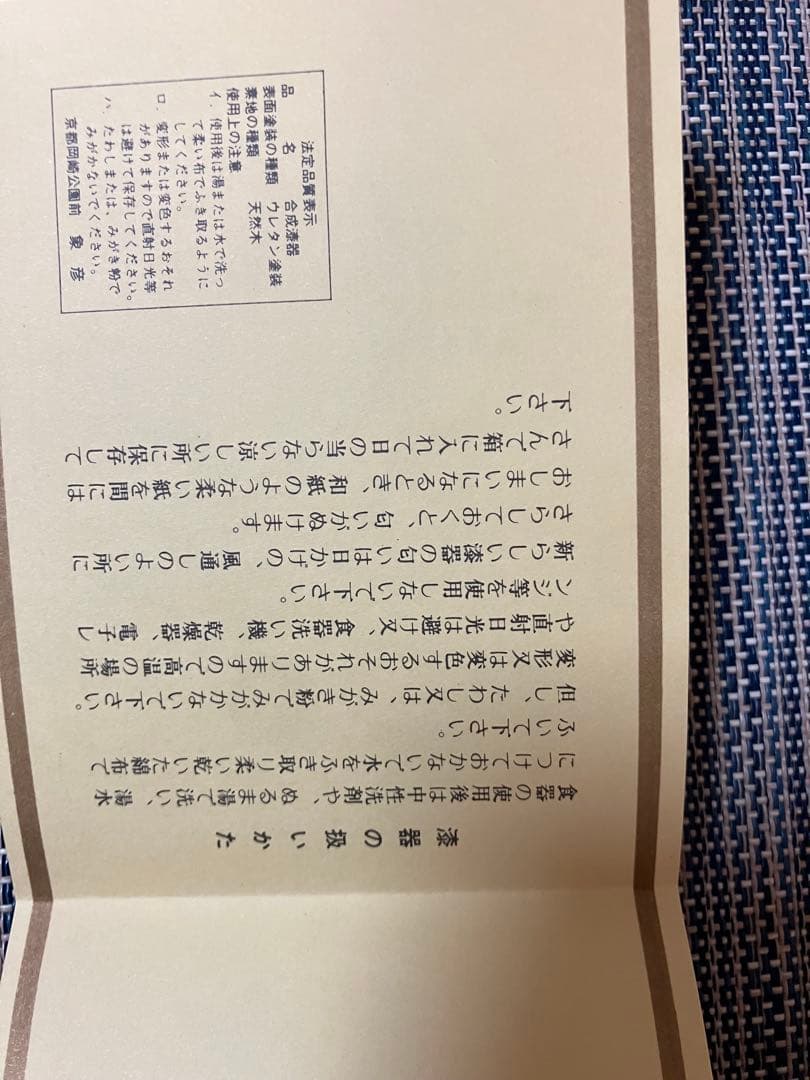 漆器の扱いかた
食器の使用後は中性洗剤や、ぬるま湯で洗い、湯水
につけておかないで水をふき取り柔い乾いた綿布で
ふいて下さい。
但し、たわし又は、みがき粉でみがかないで下さい。
変形又は変色するおそれがありますので高温の場所
や直射日光は避け又、食器洗い機、乾燥器、電子レ
ンジ等を使用しないで下さい。
新らしい漆器の匂いは日かげの、風通しのよい所に
さらしておくと、匂いがぬけます。
おしまいになるとき、和紙のような柔い紙を間には
さんで箱に入れて日の当らない涼しい所に保存して
下さい。
法定品質表示
品名 合成漆器
表面塗装の種類 ウレタン塗装
素地の種類 天然木
使用上の注意
イ．使用後は湯または水で洗っ
て柔い布でふき取るように
してください。
ロ．変形または変色するおそれ
がありますので直射日光等
は避けて保存してください。
ハ．たわしまたは、みがき粉で
みがかないでください。
京都岡崎公園前 象彦